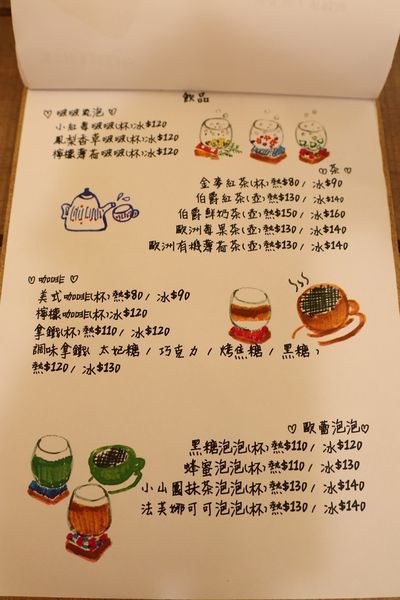 飲品
♡啵啵氣泡♡
小紅莓啵啵(杯)冰$120
鳳梨香草啵啵(杯)冰$120
檸檬薄荷啵啵(杯)冰$120
♡茶♡
金麥紅茶(杯)熱$80/冰$90
伯爵紅茶(壺)熱$130/冰$140
伯爵鮮奶茶(壺)熱$150/冰$160
歐洲莓果茶(壺)熱$130/冰$140
歐洲有機薄荷茶(壺)熱$130/冰$140
♡咖啡♡
美式咖啡(杯)熱$80/冰$90
檸檬咖啡(杯)冰$120
拿鐵(杯)熱$110/冰$120
調味拿鐵(太妃糖/巧克力/烤焦糖/黑糖)
熱$120/冰$130
♡歐蕾泡泡♡
黑糖泡泡(杯)熱$110/冰$120
蜂蜜泡泡(杯)熱$110/冰$130
小山園抹茶泡泡(杯)熱$130/冰$140
法芙娜可可泡泡(杯)熱$130/冰$140